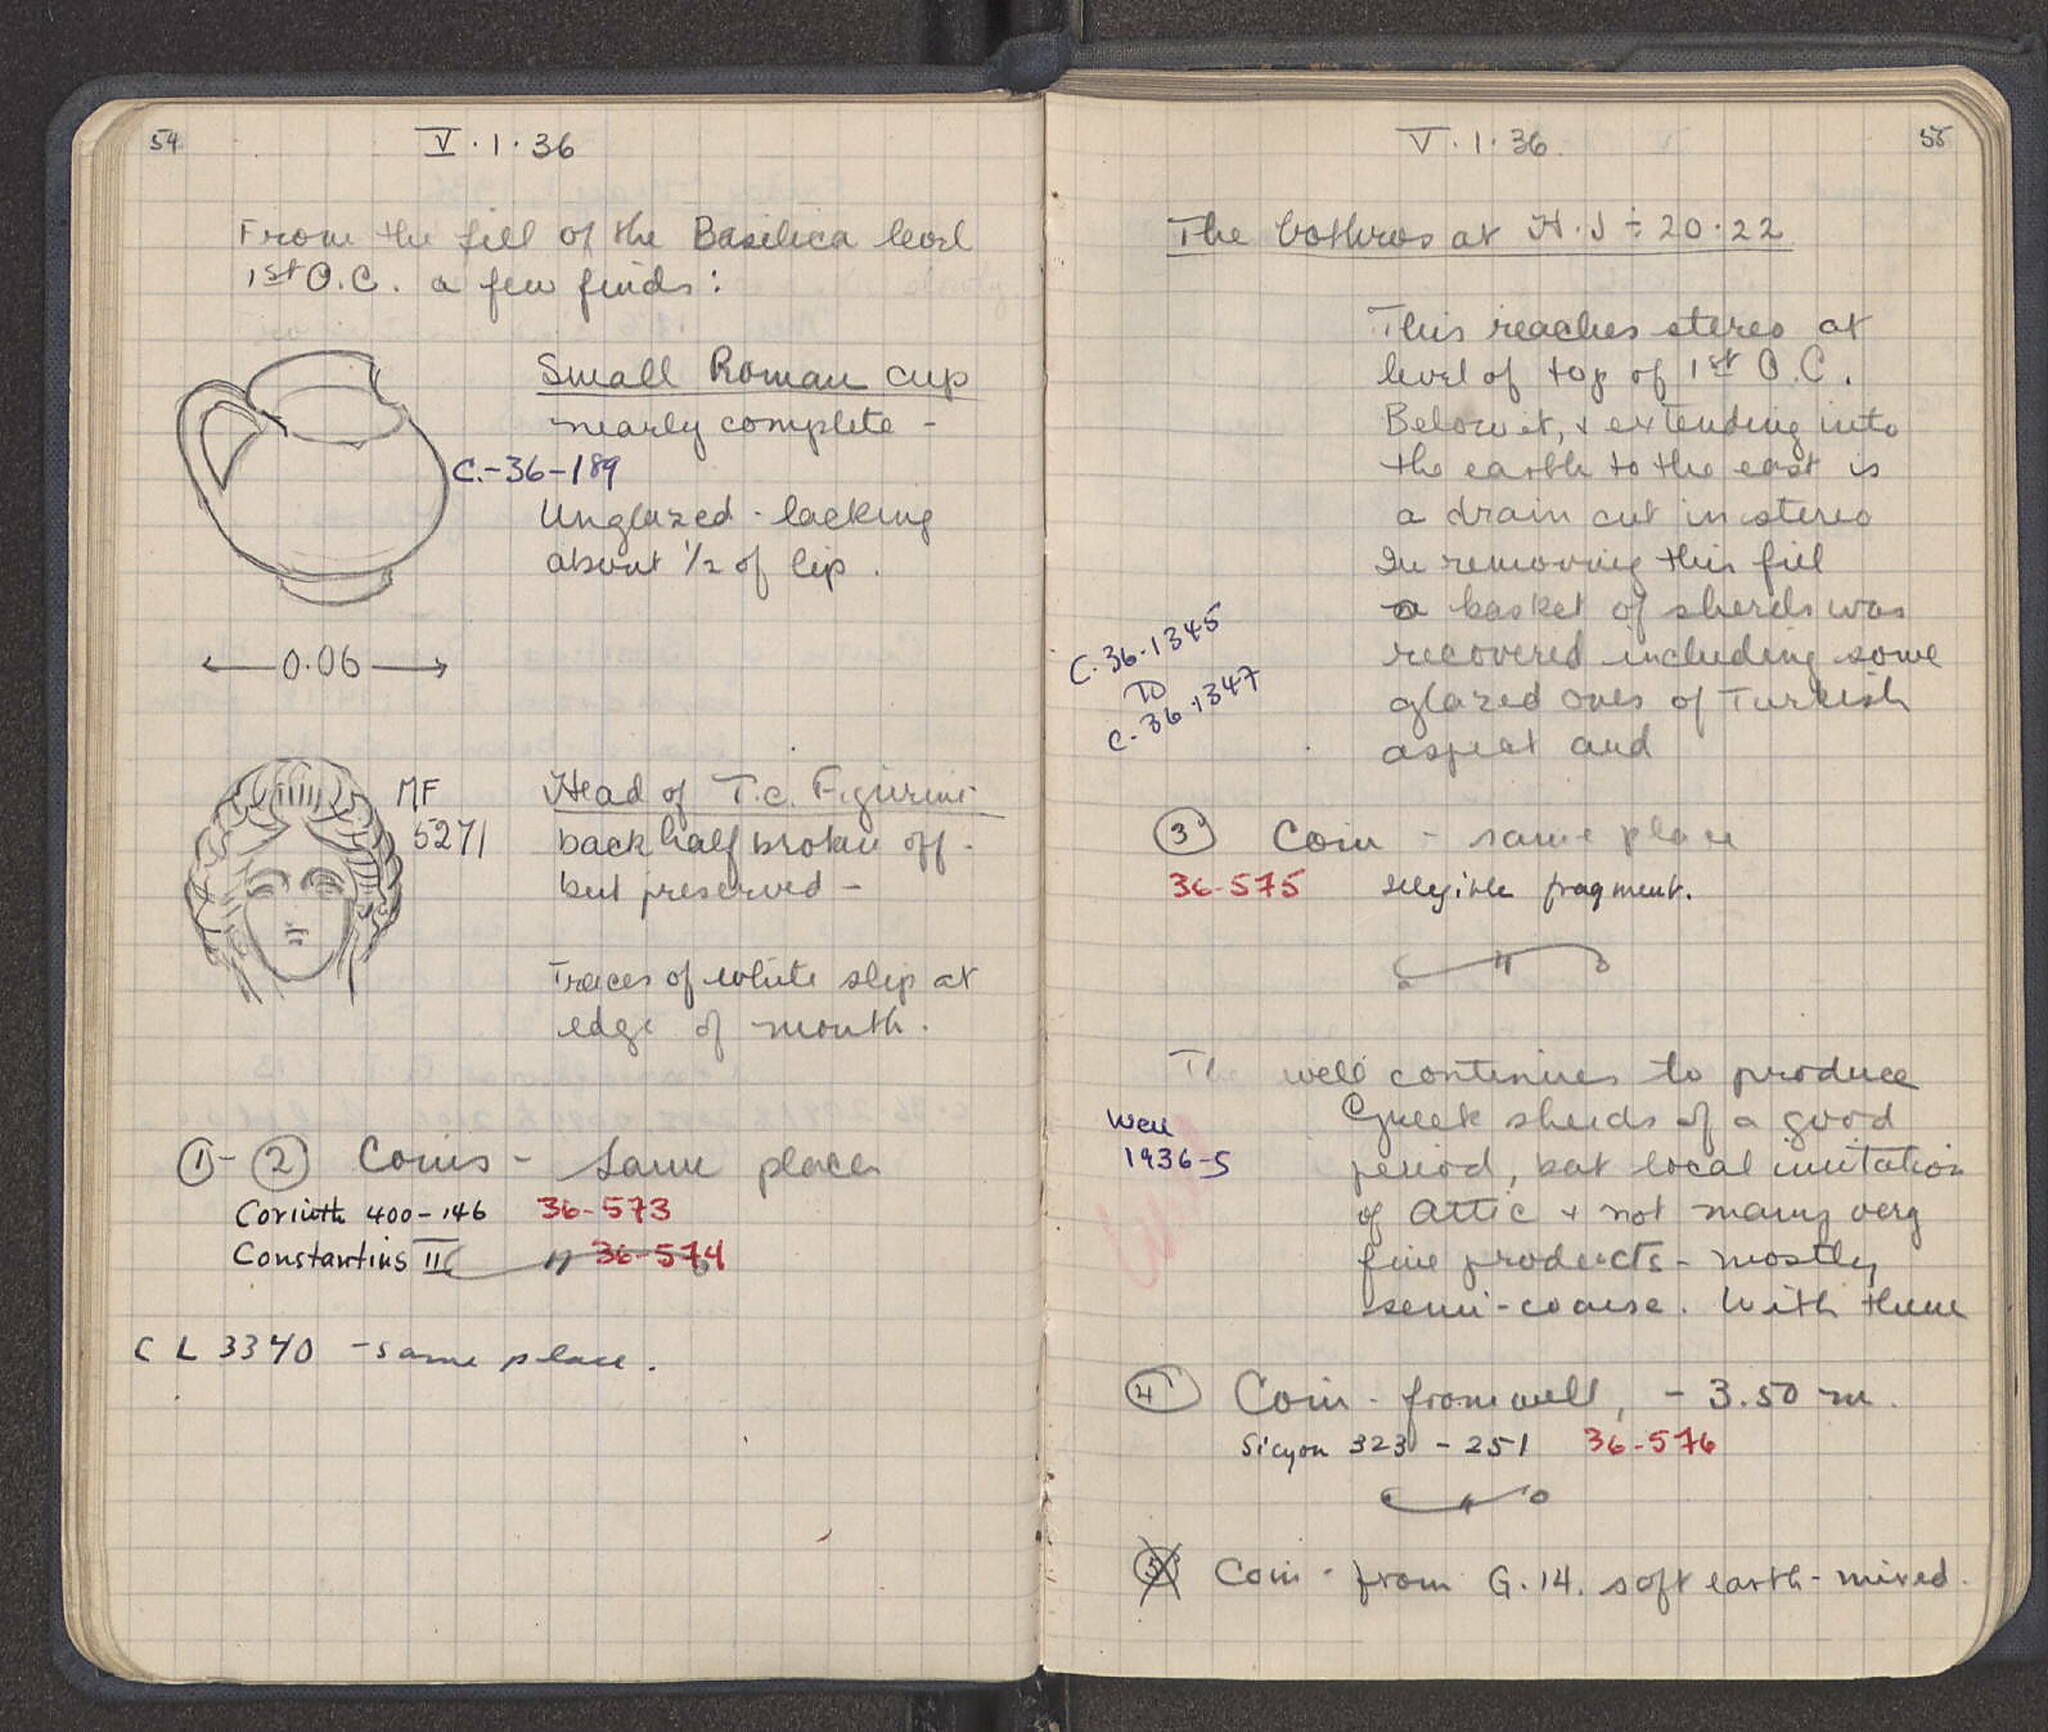 54
V . 1 . 36
From the fill of the Basilica level
1st O.C. a few finds:
Small Roman cup
nearly complete -
C.-36-189
Unglazed - lacking
about 1/2 of lip.
0.06
MF
5271
Head of T.c. Figurine
back half broken off -
but preserved -
Traces of white slip at
edge of mouth.
1 - 2 Coins - Same place
Corinth 400-146 36-573
Constantius II 36-574
CL 3340 - same place.
55
V . 1 . 36
The bothros at H.J ÷ 20.22
This reaches stereo at
level of top of 1st O.C.
Below it, & extending into
the earth to the east is
a drain cut in stereo
In removing this fill
a basket of sherds was
recovered including some
glazed ones of Turkish
aspect and
C.36.1345
TO
C.36.1347
3 Coin - same place
36-575 illegible fragment.
The well continues to produce
Greek sherds of a good
period, but local imitation
of Attic & not many very
fine products - mostly
semi-coarse. With them
Well
1936-5
4 Coin - from well, - 3.50 m.
Sicyon 323 - 251 36-576
5 Coin - from G.14. soft earth - mixed.